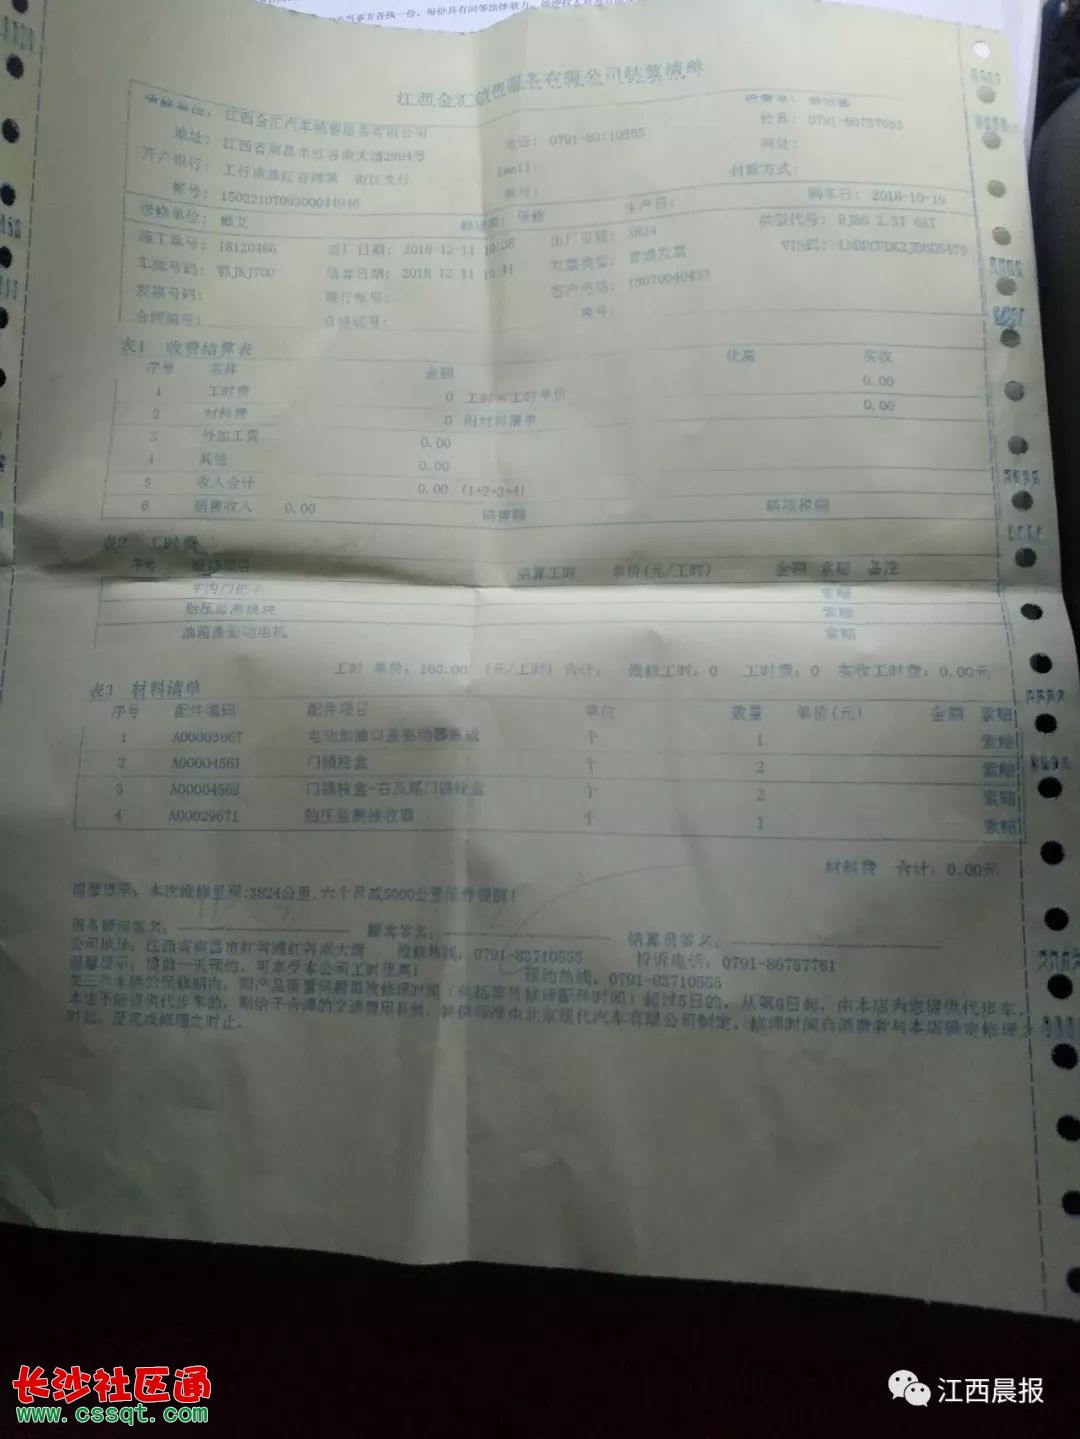 当事方各执一份，每份具有同等法律效力。
江西金汇销售服务有限公司结算清单
江西金汇汽车销售服务有限公司
地址： 江西省南昌市红谷南大道2994号 电话： 0791-83710555 传真： 0791-86757683
开户银行： 工行南昌红谷滩第 街区支行 Email： 网址：
账号： 1502210709300044946 帐号： 付款方式：
送修单位： 修理类： 保修 生产日： 购车日： 2018-10-19
施工单号： 18120466 进厂日期： 2018-12-11 10:28 出厂里程： 3824 类型代号： BJ80 2.3T 6AT
车牌号码： 鄂JKJ700 结算日期： 2018 12 11 16:41 发票类型： 普通发票 VIN码：
发票号码： 银行帐号： 客户电话： 18070040433
合同编号： 合格证号：
表1 收费结算表
序号 名称 金额 优惠 实收
1 工时费 0 工时×工时单价 0.00
2 材料费 0 附材料清单 0.00
3 外加工费 0.00
4 其他 0.00
5 收入合计 0.00 (1+2+3+4)
6 销售收入 0.00 销售额 销项税额
表2 工时费
序号 维修项目 结算工时 单价(元/工时) 金额 索赔 备注
车内门把手 索赔
胎压监测模块 索赔
油箱盖驱动电机 索赔
工时 单价：160.00 (元/工时) 合计： 维修工时：0 工时费：0 实收工时费：0.00元
表3 材料清单
序号 配件编码 配件项目 单位 数量 单价(元) 金额 索赔
1 A00003867 电动加油口盖驱动器总成 个 1 索赔
2 A00004561 门锁栓盒 个 2 索赔
3 A00004562 门锁栓盒-右及尾门锁栓盒 个 2 索赔
4 A00029671 胎压监测接收器 个 1 索赔
材料费 合计：0.00元
温馨提示：本次维修里程:3824公里,六个月或5000公里保养提醒!
服务顾问签名： 顾客签名： 结算员签名：
公司地址：江西省南昌市红谷滩红谷南大道 维修热线：0791-83710555 投诉电话：0791-86757761
温馨提示：提前一天预约，可享受本公司工时优惠! 预约热线：0791-83710555
在三包车辆的保修期内，因产品质量问题每次修理时间（包括等待修理配件时间）超过5日的，从第6日起，由本店为您提供代步车，
本店不能提供代步车的，则给予合理的交通费用补偿，补偿标准由北京现代汽车有限公司制定。修理时间自消费者与本店确定修理之
时起，至完成修理之时止。
长沙社区通
www.cssqt.com
江西晨报